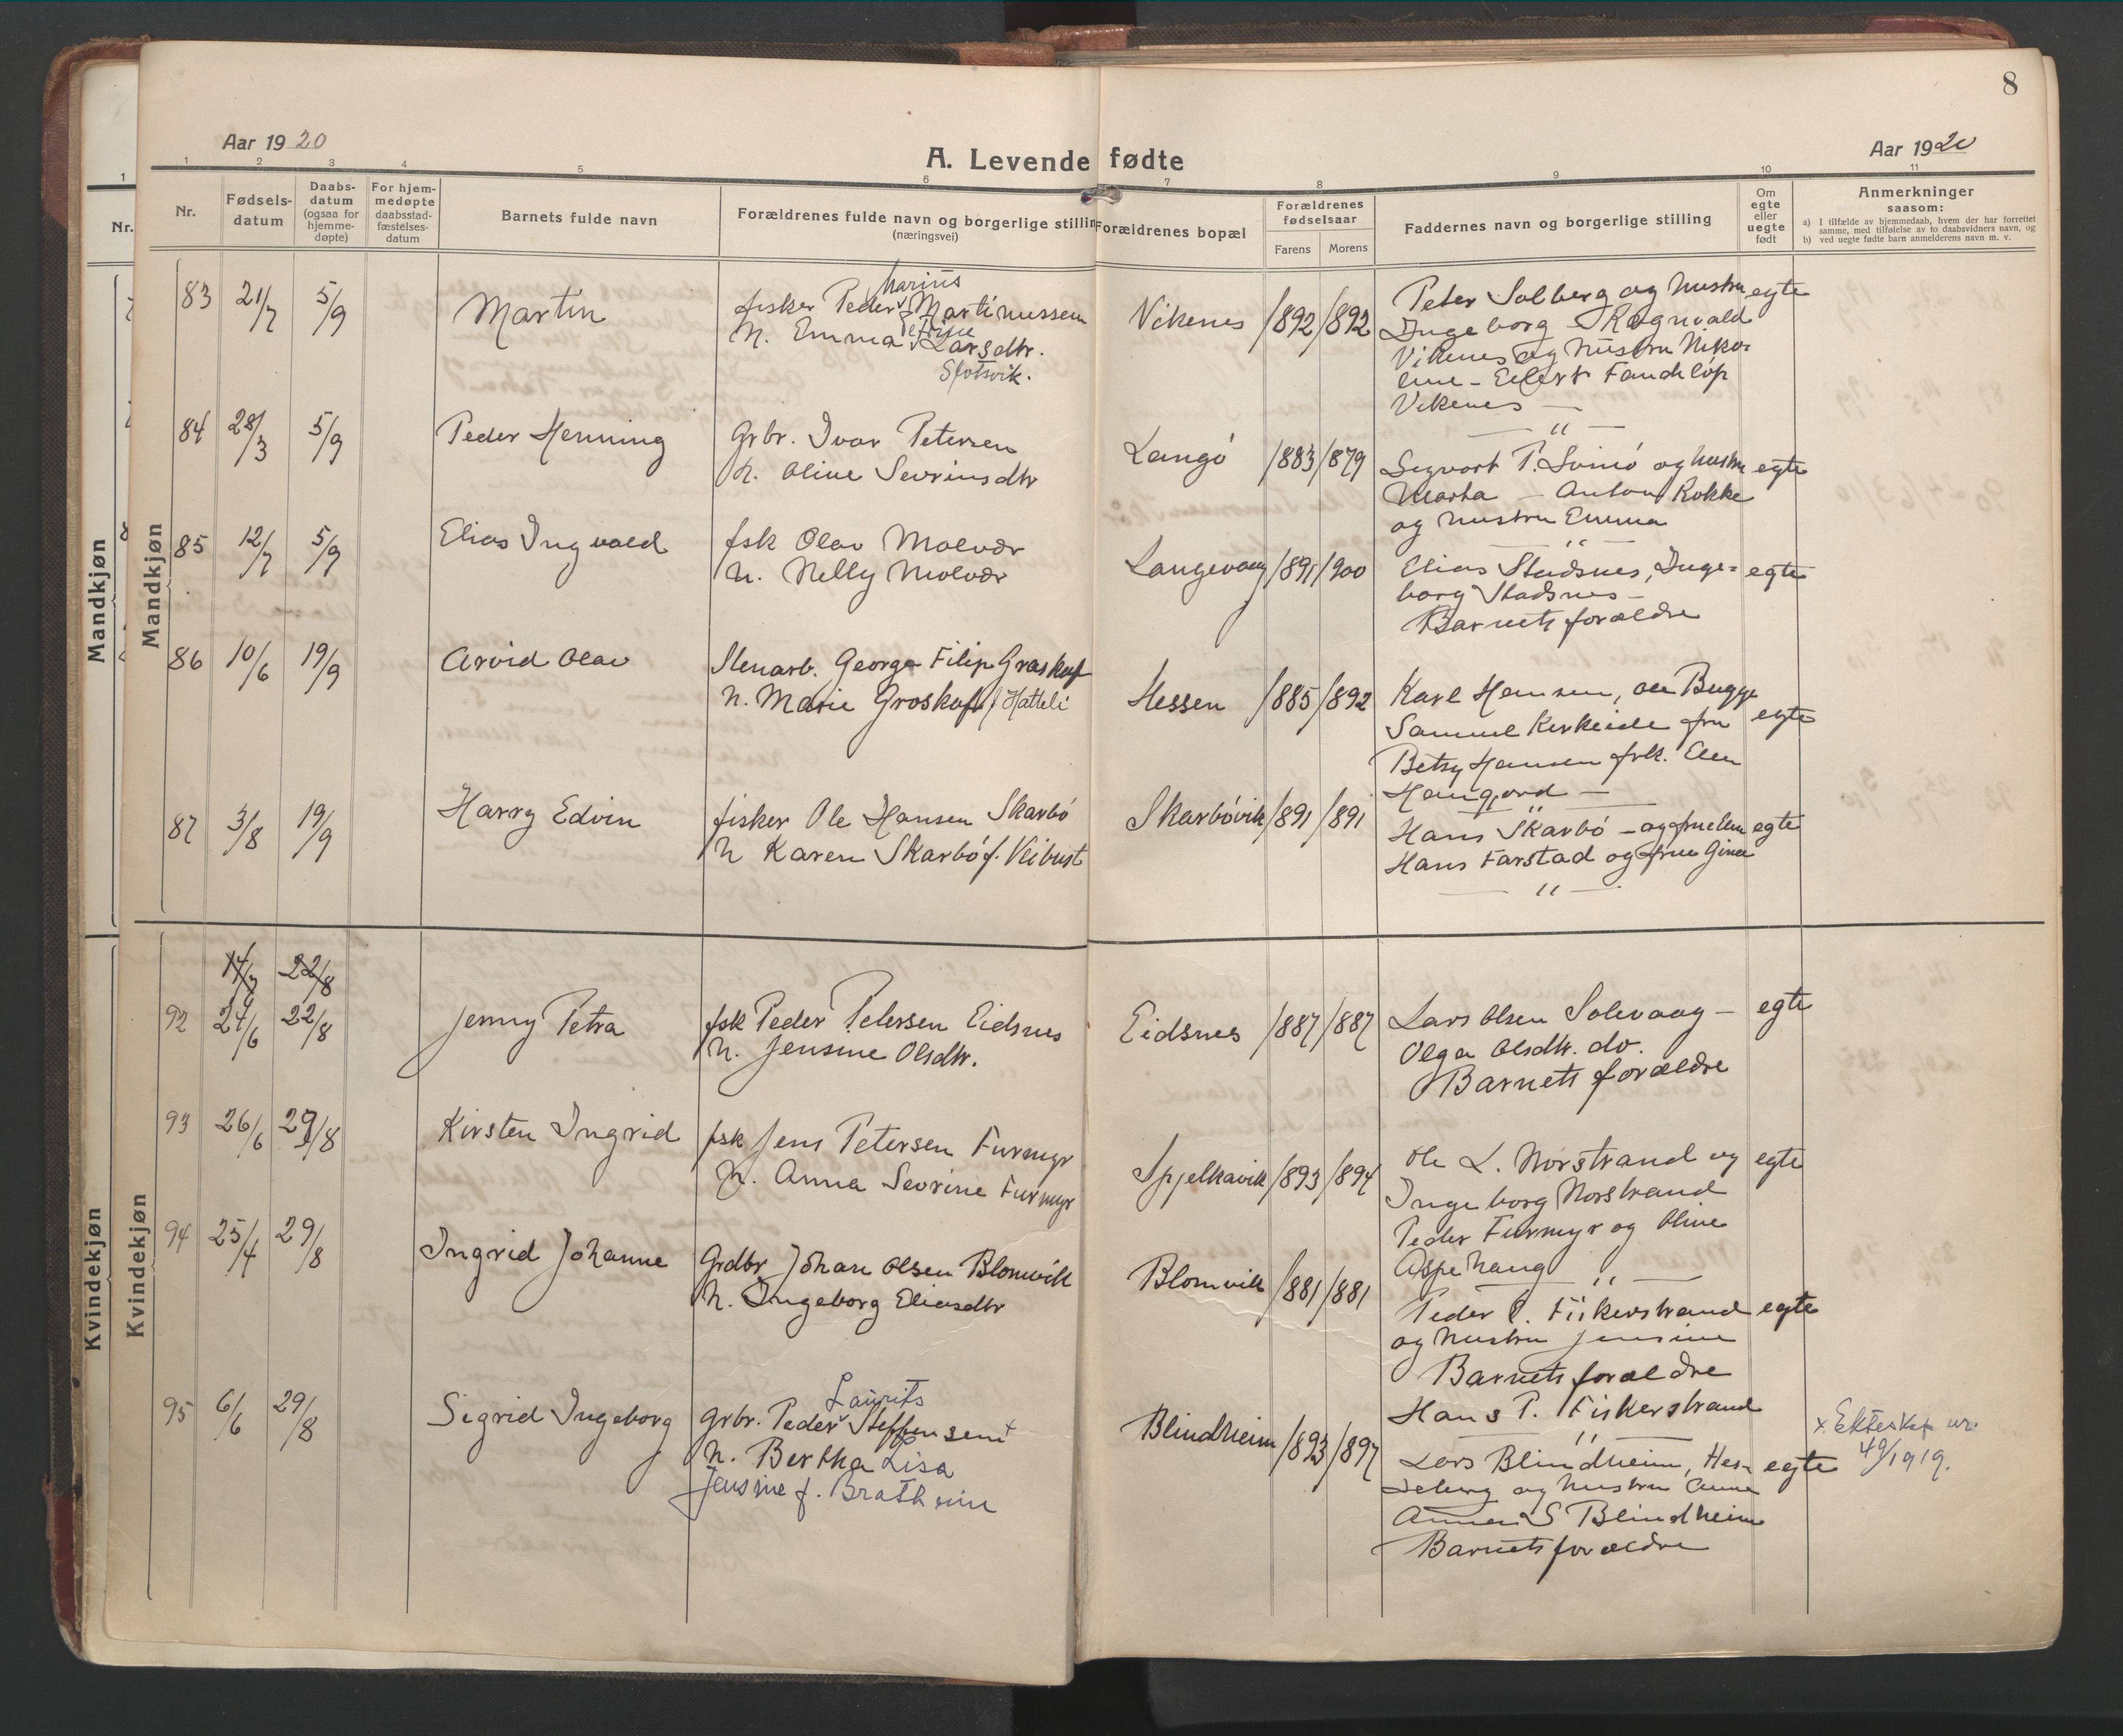 8
Aar 1920
A. Levende fødte
Aar 1920
1 2 3 4 5 6 7 8 9 10 11
Nr.
Fødsels-
datum
Daabs-
datum
(ogsaa for
hjemme-
døpte)
For hjem-
medøpte
daabsstad-
fæstelses-
datum
Barnets fulde navn
Forældrenes fulde navn og borgerlige stillin
(næringsvei)
Forældrenes bopæl
Forældrenes
fødselsaar
Farens Morens
Faddernes navn og borgerlige stilling
Om
egte
eller
uegte
født
Anmerkninger
saasom:
a) I tilfælde av hjemmedaab, hvem der har forrettet
samme, med tilføielse av to daabsvidners navn, og
b) ved uegte fødte barn anmelderens navn m. v.
1
Nr.
Mandkjøn
Mandkjøn
83 21/7 5/9 Martin
fisker Peder Marius Martinussen
h. Emma Petrine Larsdtr.
Slotsvik.
Vikenes 1892 1892
Peter Solberg og hustru
Ingeborg - Rognvald
Vikenes og hustru Niko=
line - Eilert Fandelöp
Vikenes —
— " —
egte
84 28/3 5/9 Peder Henning
Grbr. Ivar Petersen
h. Oline Sevrinsdtr
Langö 1883 1879
Sigvart P. Svinö og hustru
Marta - Anton Rokke
og hustru Emma
— " —
egte
85 12/7 5/9 Elias Ingvald
fsk Olav Molvær
h. Nelly Molvær
Langevaag 1891 1900
Elias Stadsnes, Inge=
borg Stadsnes -
Barnets forældre
egte
86 10/6 19/9 Arvid Olav
Stenarb. Georg Filip Graskopf
h. Marie Groskopf f. Hatteli
Hessen 1885 1892
Karl Hansen, Ole Bugge
Samuel Kirkeide fru
Betsy Hansen frk. Elen
Haugjord —
— " —
egte
87 3/8 19/9 Harry Edvin
fisker Ole Hansen Skarbö
h Karen Skarbö f. Veibust
Skarbövik 1891 1891
Hans Skarbö - og frue Elen
Hans Farstad og frue Gina
— " —
egte
Kvindekjøn
Kvindekjøn
14/7 22/8
92 24/6 22/8 Jenny Petra
fsk Peder Petersen Eidsnes
h. Jensine Olsdtr.
Eidsnes 1887 1887
Lars Olsen Solevaag -
Olga Olsdtr. do.
Barnets forældre
egte
93 26/6 29/8 Kirsten Ingrid
fsk Jens Petersen Furmyr
h. Anna Sevrine Furmyr
Spjelkavik 1893 1894
Ole L. Norstrand og
Ingeborg Norstrand
Peder Furmyr og Oline
Aspehaug
— " —
egte
94 25/4 29/8 Ingrid Johanne
Grdbr Johan Olsen Blomvik
h. Ingeborg Eliasdtr
Blomvik 1881 1881
Peder P. Fiskerstrand
og hustru Jensine
Barnets forældre
Hans P. Fiskerstrand
— " —
egte
95 6/6 29/8 Sigrid Ingeborg
grbr. Peder Laurits Steffensen x
h. Bertha Lisa
Jensine f. Bratheim
Blindheim 1893 1897
Lars Blindheim, Hes-
seberg og hustru Anne
Anna S Blindheim
Barnets forældre
egte
x Ekteskap nr.
49/1919.